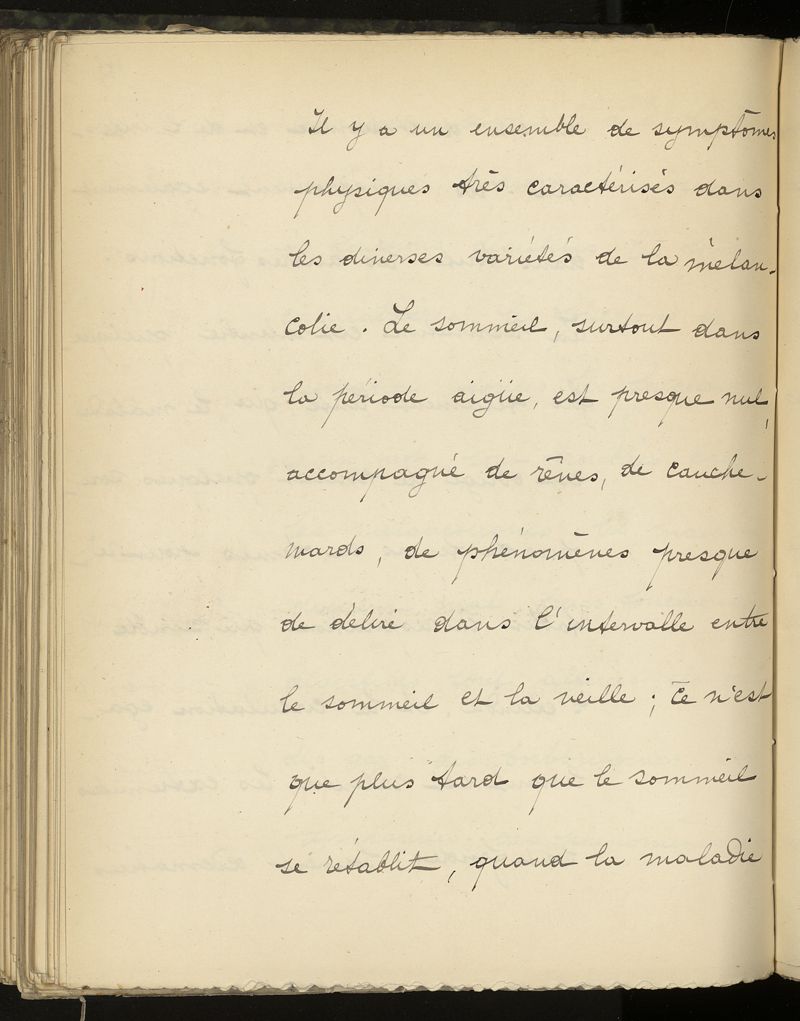 Il y a un ensemble de symptômes
physiques très caractérisés dans
les diverses variétés de la mélan-
colie. Le sommeil, surtout dans
la période aigüe, est presque nul,
accompagné de rêves, de cauche-
mards, de phénomènes presque
de délire dans l'intervalle entre
le sommeil et la veille ; ce n'est
que plus tard que le sommeil
se rétablit, quand la maladie